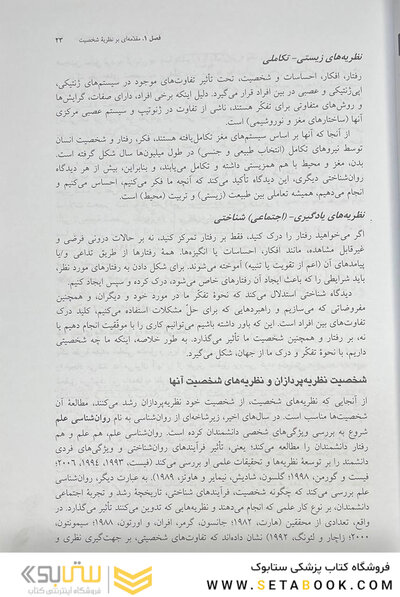 فصل ۱. مقدمه‌ای بر نظریهٔ شخصیت ۲۳
نظریه‌های زیستی- تکاملی
رفتار، افکار، احساسات و شخصیت، تحت تأثیر تفاوت‌های موجود در سیستم‌های ژنتیکی،
اپی‌ژنتیکی و عصبی در بین افراد قرار می‌گیرد. دلیل اینکه برخی افراد، دارای صفات، گرایش‌ها
و روش‌های متفاوتی برای تفکّر هستند، ناشی از تفاوت در ژنوتیپ و سیستم عصبی مرکزی
آنها (ساختارهای مغز و نوروشیمی) است.
از آنجا که آنها بر اساس سیستم‌های مغز تکامل‌یافته هستند، فکر، رفتار و شخصیت انسان
توسط نیروهای تکامل (انتخاب طبیعی و جنسی) در طول میلیون‌ها سال شکل گرفته است.
بدن، مغز و محیط با هم همزیستی داشته و تکامل می‌یابند، و بنابراین، بیش از هر دیدگاه
روان‌شناختی دیگری، این دیدگاه تأکید می‌کند که آنچه ما فکر می‌کنیم، احساس می‌کنیم و
انجام می‌دهیم، همیشه تعاملی بین طبیعت (زیستی) و تربیت (محیط) است.
نظریه‌های یادگیری- (اجتماعی) شناختی
اگر می‌خواهید رفتار را درک کنید، فقط بر رفتار تمرکز کنید، نه بر حالات درونی فرضی و
غیرقابل مشاهده، مانند افکار، احساسات یا انگیزه‌ها. همهٔ رفتارها از طریق تداعی و/یا
پیامدهای آن (اعم از تقویت یا تنبیه) آموخته می‌شوند. برای شکل دادن به رفتارهای مورد نظر،
باید شرایطی را که باعث ایجاد آن رفتارهای خاص می‌شود، درک کرده و سپس ایجاد کنیم.
دیدگاه شناختی استدلال می‌کند که نحوهٔ تفکّر ما در مورد خود و دیگران، و همچنین
مفروضاتی که می‌سازیم و راهبردهایی که برای حلّ مشکلات استفاده می‌کنیم، کلید درک
تفاوت‌های بین افراد است. این که باور داشته باشیم می‌توانیم کاری را با موفقیت انجام دهیم یا
نه، بر رفتار و همچنین شخصیت ما تأثیر می‌گذارد. به طور خلاصه، اینکه ما چه شخصیتی
داریم، با نحوهٔ تفکّر و درک ما از جهان، شکل می‌گیرد.
شخصیت نظریه‌پردازان و نظریه‌های شخصیت آنها
از آنجایی که نظریه‌های شخصیت، از شخصیت خود نظریه‌پردازان رشد می‌کنند، مطالعهٔ آن
شخصیت‌ها مناسب است. در سال‌های اخیر، زیرشاخه‌ای از روان‌شناسی به نام روان‌شناسی علم
شروع به بررسی ویژگی‌های شخصی دانشمندان کرده است. روان‌شناسی علم، هم علم و هم
رفتار دانشمندان را مطالعه می‌کند؛ یعنی، تأثیر فرآیندهای روان‌شناختی و ویژگی‌های فردی
دانشمند را بر توسعهٔ نظریه‌ها و تحقیقات علمی او بررسی می‌کند (فیست، ۱۹۹۳، ۱۹۹۴، ۲۰۰۶؛
فیست و گورمن، ۱۹۹۸؛ گلسون، شادیش، نیمایر و هاوتز، ۱۹۸۹). به عبارت دیگر، روان‌شناسی
علم بررسی می‌کند که چگونه شخصیت، فرآیندهای شناختی، تاریخچهٔ رشد و تجربهٔ اجتماعی
دانشمندان، بر نوع کار علمی که انجام می‌دهند و نظریه‌هایی که به وجود می‌آورند تأثیر می‌گذارد. در
واقع، تعدادی از محققین (هارت، ۱۹۸۲؛ جانسون، گرمر، افران، و اورتون، ۱۹۸۸؛ سیمونتون،
۲۰۰۰؛ زاچار و لئونگ، ۱۹۹۲) نشان داده‌اند که تفاوت‌های شخصیتی، بر جهت‌گیری نظری و
ستابوک
فروشگاه اینترنتی کتاب
فروشگاه کتاب پزشکی ستابوک
WWW.SETABOOK.COM